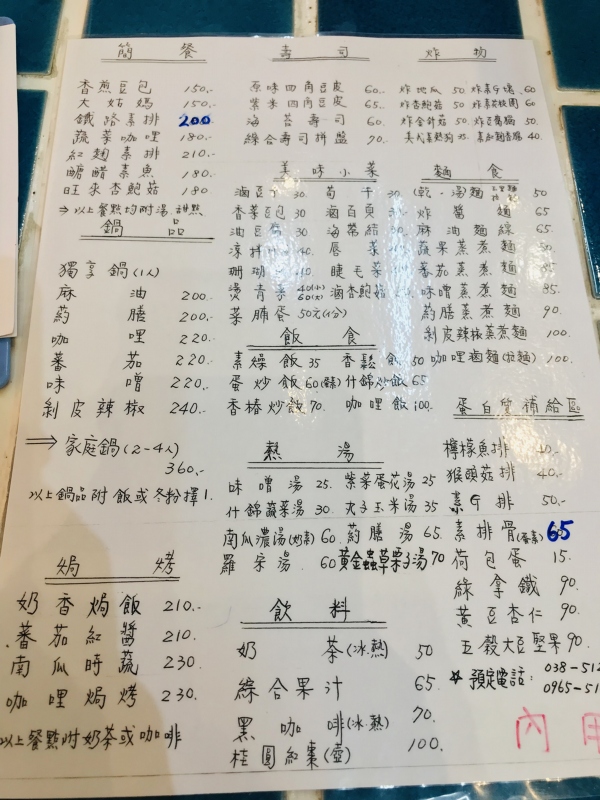 簡 餐
香煎豆包 150.-
大姑媽 150.-
鐵路素排 200
蔬菜咖哩 180.-
紅麴素排 210.-
醣醋素魚 180.-
旺來杏鮑菇 180
⇒以上餐點均附湯.甜點
鍋 品
獨享鍋(1人)
麻油 200.-
藥膳 200.-
咖哩 220.-
蕃茄 220.-
味噌 220.-
剝皮辣椒 240.-
⇒ 家庭鍋(2-4人)
360.-
以上鍋品附飯或冬粉擇1.
焗 烤
奶香焗飯 210.-
蕃茄紅醬 210.-
南瓜時蔬 230
咖哩焗烤 230.
以上餐點附奶茶或咖啡
壽 司
原味四角豆皮 60.
紫米四角豆皮 65.
海苔壽司 60.
綜合壽司拼盤 70.
美味小菜
滷豆干 30. 筍干 30.
香菜豆包 30 滷百頁
油豆腐 30. 海帶結 30.
涼拌 40. 唇菜
珊瑚 睫毛菜
燙青菜 40(小) 60(大) 滷杏鮑菇
菜脯蛋 50元(1份)
飯 食
素燥飯 35 香鬆飯 50
蛋炒飯 60 什錦炒飯 65
香椿炒飯 70. 咖哩飯 100.
熱 湯
味噌湯 25. 紫菜蛋花湯 25
什錦蔬菜湯 30. 丸子玉米湯 35
南瓜濃湯 60. 藥膳湯 65.
羅宋湯 60 黃金蟲草栗子湯 70
飲 料
奶茶(冰.熱) 50
綜合果汁 65.
黑咖啡(冰.熱) 70.
桂圓紅棗(壺) 100.
炸 物
炸地瓜 50 60
炸杏鮑菇 50. 60
炸金針菇 50. 50.
美式素熱狗 40.
麵 食
(乾.湯麵) 50
炸醬麵 65
麻油麵線 65.
蔬果蒸煮麵
番茄蒸煮麵 85.
味噌蒸煮麵 85.
藥膳蒸煮麵 90.
剝皮辣椒蒸煮麵 100.
咖哩滷麵(拉麵) 100.
蛋白質補給區
檸檬魚排 40.-
猴頭菇排 40.-
素G排 50.-
素排骨 65
荷包蛋 15.
綠拿鐵 90.
黃豆杏仁 90.
五穀大豆堅果 90.
☆ 預定電話: 038-512
0965-51
內用